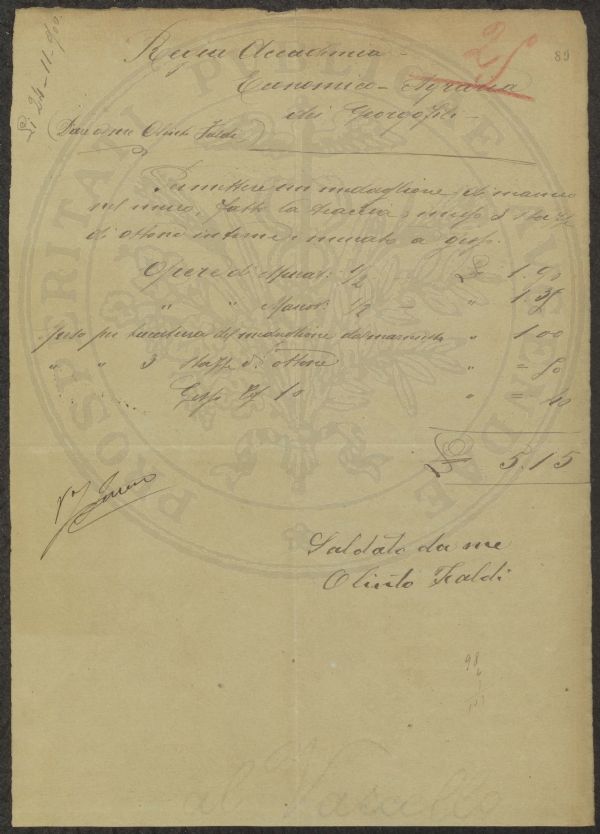 Li 24-11-900
25
89
Regia Accademia
Economico-Agraria
dei Georgofili
Dare a me Olinto Faldi
Per mettere un medaglione di marmo
nel muro, fatto la traccia, messo 3 staffe
di ottone interne e murato a gesso.
Opere di Murat: 1/2 — £ 1.90
" " Manov: 1/2 — " 1.35
Speso per bucatura del medaglione dal marmista " 1.00
" " 3 staffe di ottone " =50
Gesso Kg 10 " =40
£ 5.15
Saldato da me
Olinto Faldi
98
PROSPERITATI PUBLICAE AUGENDAE
al Varcello